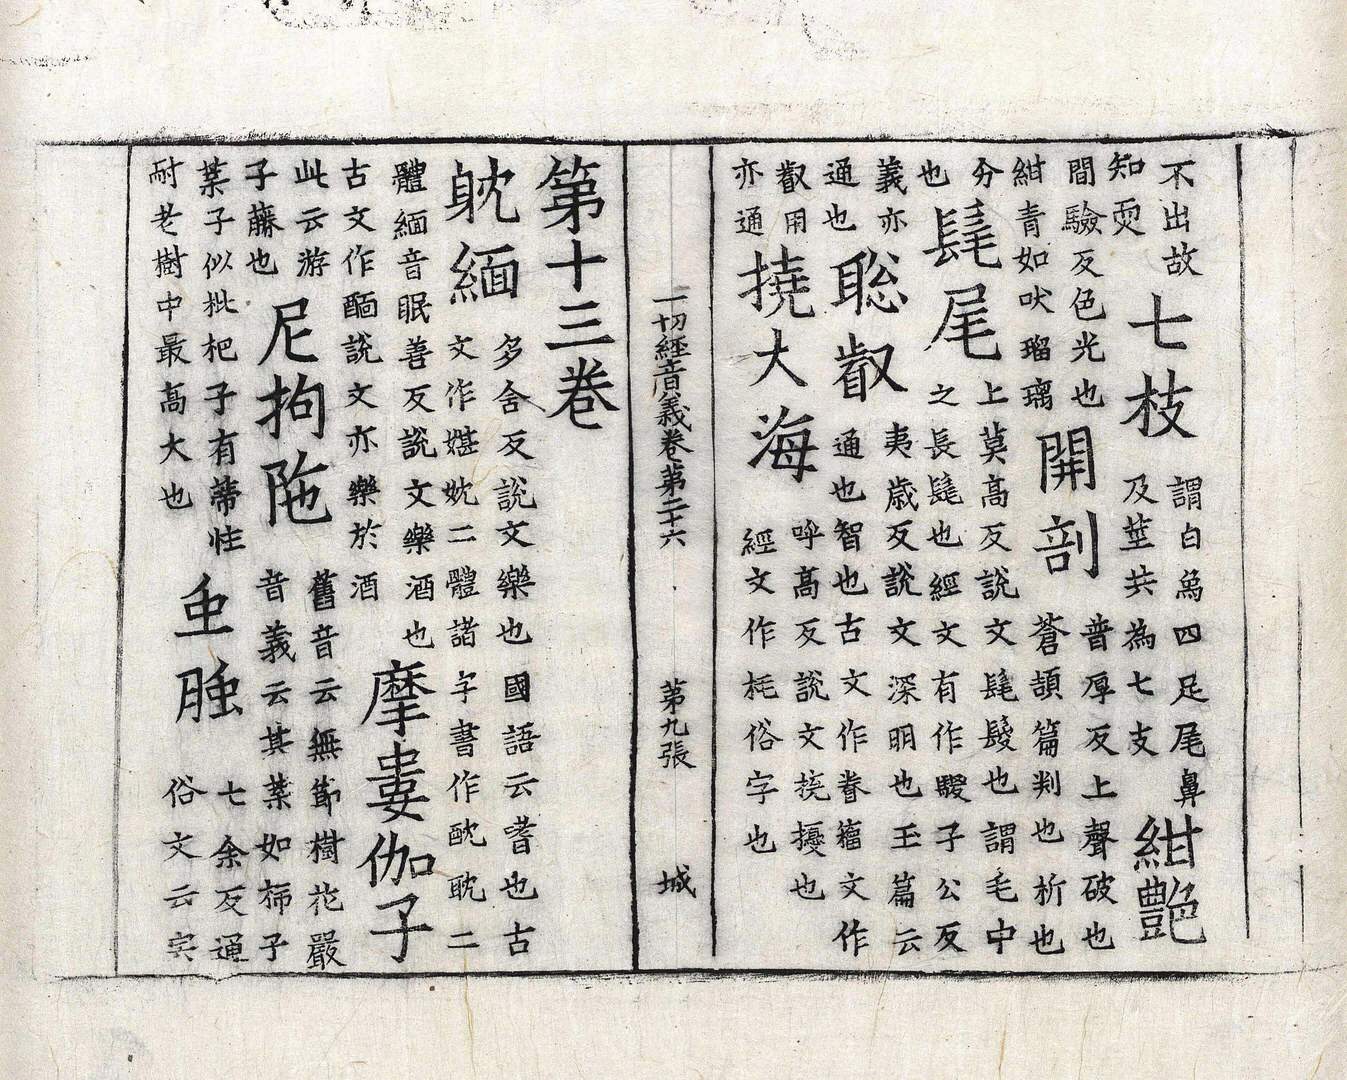 不出故
知耎
七枝
謂白象四足尾鼻
及莖共為七支
紺艷
間驗反色光也
紺青如吠瑠璃
開剖
普厚反上聲破也
蒼頡篇判也析也
分
也
髦尾
上莫高反說文髦髮也謂毛中
之長髦也經文有作騣子公反
義亦
通也
聡叡
夷歲反說文深明也玉篇云
通也智也古文作睿籀文作
叡用
亦通
撓大海
呼高反說文撓擾也
經文作耗俗字也
一切經音義卷第二十六 第九張 城
第十三卷
躭緬
多含反說文樂也國語云嗜也古
文作媅妉二體諸字書作酖耽二
體緬音眠善反說文樂酒也
古文作䤄說文亦樂於酒
摩婁伽子
此云游
子藤也
尼拘陁
舊音云無節樹花嚴
音義云其葉如柿子
葉子似枇杷子有蔕性
耐老樹中最高大也
七余反通
俗文云宍